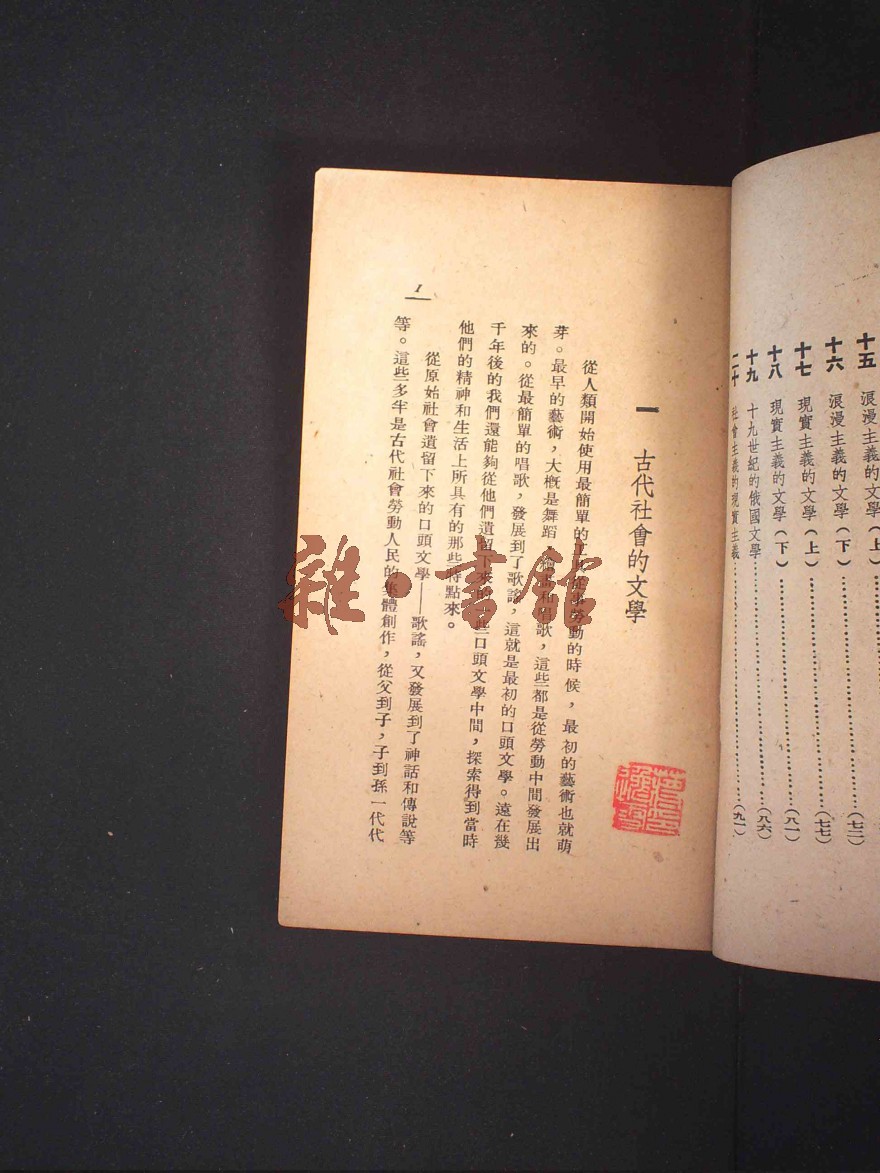 十五 浪漫主義的文學(上)
十六 浪漫主義的文學(下)…………(七二)
十七 現實主義的文學(上)…………(七七)
十八 現實主義的文學(下)…………(八一)
十九 十九世紀的俄國文學…………(八六)
二十 社會主義的現實主義…………(九一)
一 古代社會的文學
從人類開始使用最簡單的工具從事勞動的時候，最初的藝術也就萌
芽。最早的藝術，大槪是舞蹈、繪畫和唱歌，這些都是從勞動中間發展出
來的。從最簡單的唱歌，發展到了歌謠，這就是最初的口頭文學。遠在幾
千年後的我們還能夠從他們遺留下來的一些口頭文學中間，探索得到當時
他們的精神和生活上所具有的那些特點來。
從原始社會遺留下來的口頭文學——歌謠，又發展到了神話和傳說等
等。這些多半是古代社會勞動人民的集體創作，從父到子，子到孫一代代
1
雜·書館